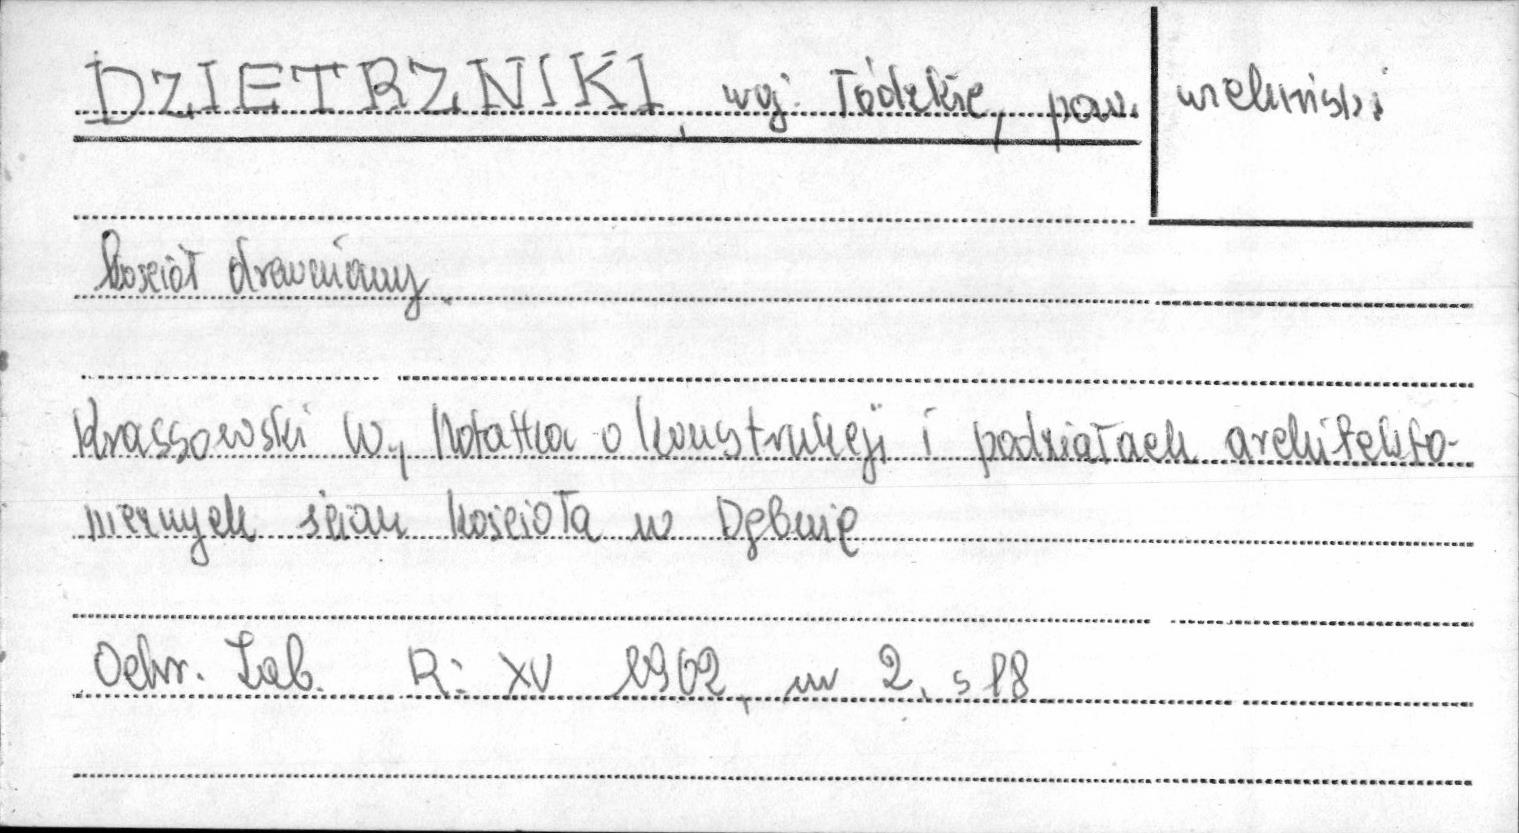 DZIETRZNIKI, woj. łódzkie, pow. wieluński
Kościół drewniany.
Krassowski W., Notatka o konstrukcji i podziałach architekto-
nicznych ścian kościoła w Dębnie
Ochr. Zab. R: XV 1962, nr 2, s 18